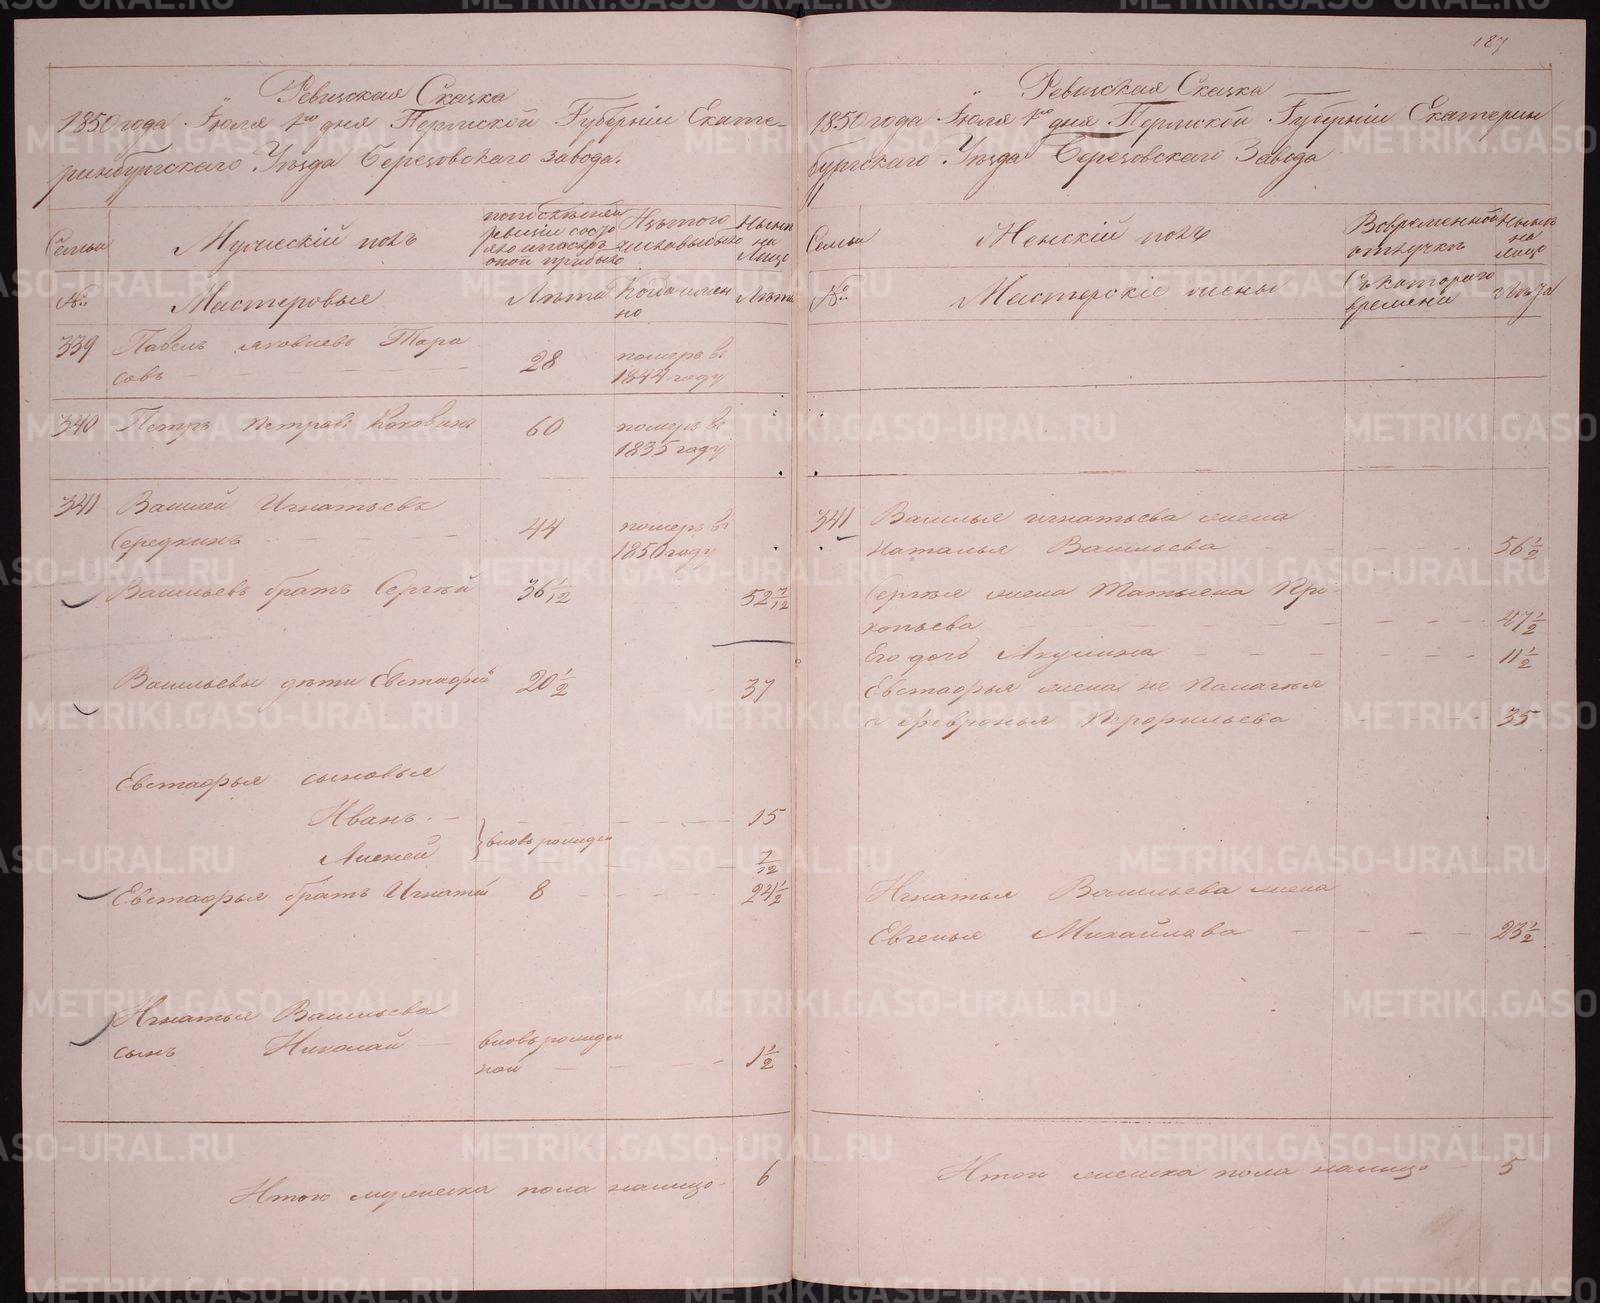 187
Ревизская Сказка
1850 года Июля 1го дня Пермской Губернии Екате-
ринбургского Уезда Березовского завода.
Семьи
Мужескій полъ
по последней
ревизіи состо
яло и после
оной прибыло
Изъ того
числа выбыло
Ныне
на
лицо
№
Мастеровые
Лета
Когда имен
но
Лета
339 Павелъ Яковлевъ Тара
совъ 28 померъ въ
1844 году
340 Петръ Петровъ Коковинъ 60 померъ въ
1835 году
341 Василей Игнатьевъ
Середкинъ 44 померъ въ
1850 году
Васильевъ братъ Сергѣй 36 1/12 52 7/12
Васильевы дѣти Евстафій 20 1/2 37
Евстафья сыновья
Иванъ 15
вновь рожден
Алексей 7/12
Евстафья братъ Игнатій 8 24 1/2
Игнатья Васильева
сынъ Николай вновь рожден
ной 1 1/2
Итого мужеска пола налицо 6
Ревизская Сказка
1850 года Июля 1го дня Пермской Губерніи Екатерин
бургскаго Уѣзда Березовскаго Завода
Семьи
Женскій полъ
Во временной
отлучкѣ
Нынѣ
на
лицо
№
Мастерскіе жены
Съ котораго
времени
Лѣта
341 Василья Игнатьева жена
Наталья Васильева 56 1/2
Сергѣя жена Татьяна Про-
копьева 47 1/2
Его дочь Акулина 11 1/2
Евстафья жена не Палагѣя
а Февронья Перфильева 35
Игнатья Васильева жена
Евгенья Михайлова 23 1/2
Итого женска пола налицо 5
METRIKI.GASO-URAL.RU